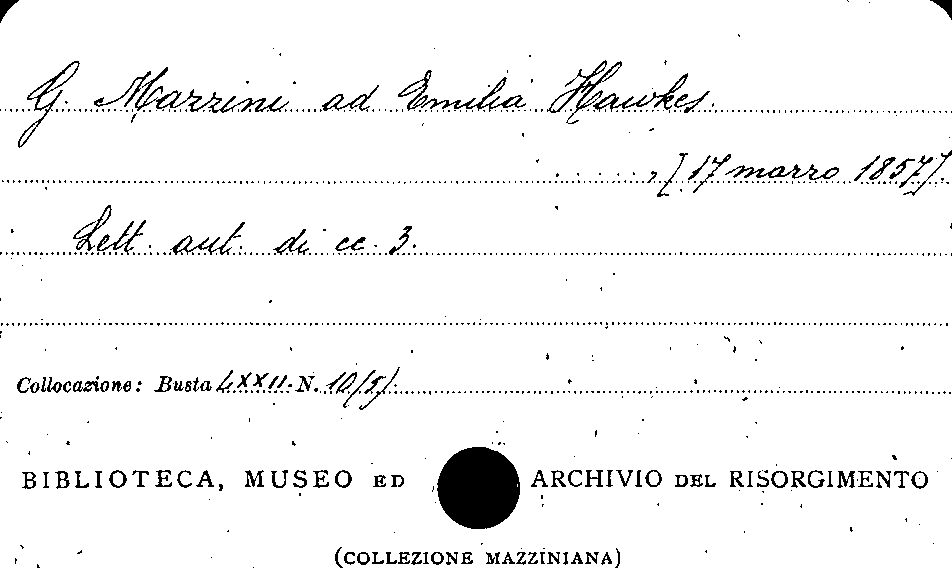 G. Mazzini ad Emilia Hawkes.
....., [17 marzo 1857].
Lett. aut. di cc. 3.
Collocazione: Busta LXXII. N. 10/5/.
BIBLIOTECA, MUSEO ED ARCHIVIO DEL RISORGIMENTO
(COLLEZIONE MAZZINIANA)